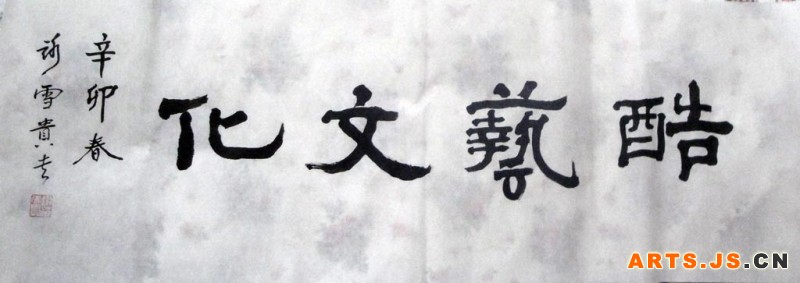 酷藝文化
辛卯春
雪貴書
ARTS.JS.CN